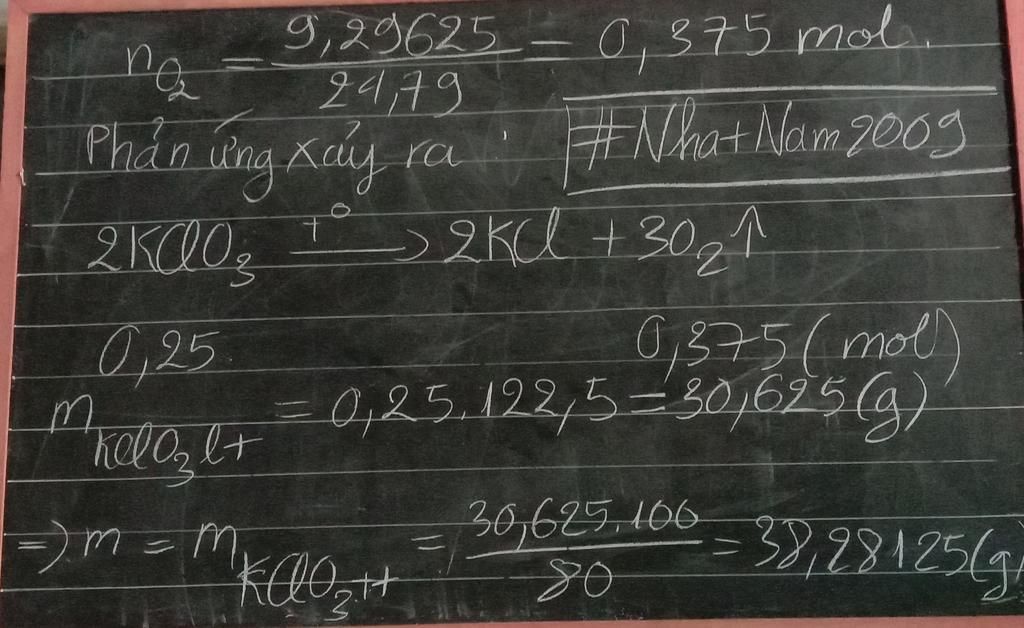 n O₂ = 9,29625 / 24,79 = 0,375 mol.
Phản ứng xảy ra :
#NhatNam2009
2KClO₃ t° → 2KCl + 3O₂ ↑
0,25 0,375 (mol)
m KClO₃ lt = 0,25.122,5 = 30,625 (g)
=) m = m KClO₃ tt = 30,625.100 / 80 = 38,28125 (g)